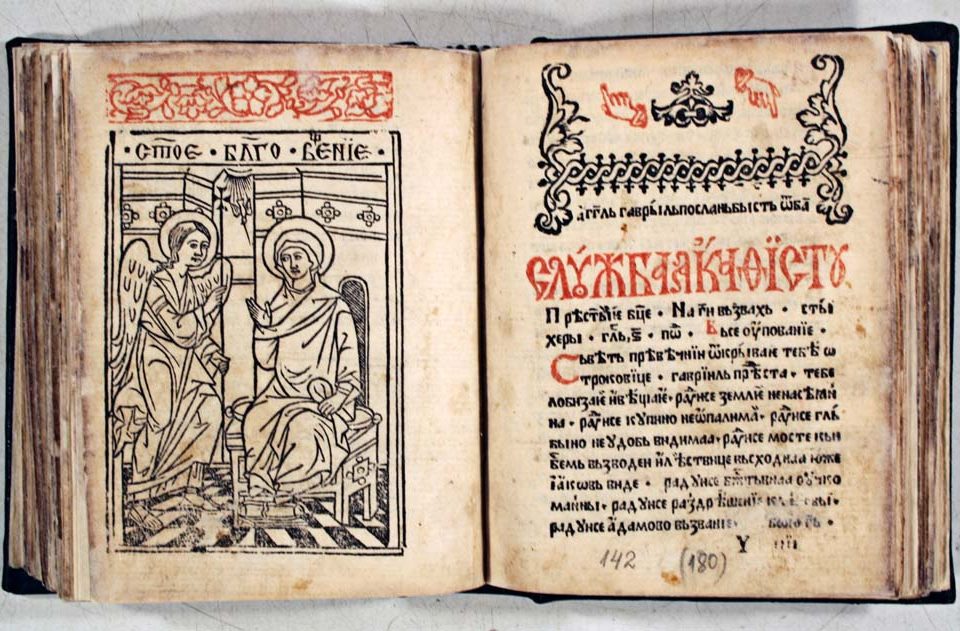 · СТ҃ОЕ · БЛ҃ГО · ВѢЩЕНІЕ ·
а҆гг҃ль гаврыльпосланьбысть ѿба
СЛꙊЖБА АКАѲЇСТꙊ
Прѣст҃ыѥ бц҃е · На г҃и вьзвахь · сты
херы · гль, ѕ҃ · по҃ⷣ · Вьсе оупованіе ·
Сьвѣть прѣвѣчнїи ѿкрываѥ тебѣ ѡ
троковице · гаврїиль прѣⷣста · тебе
лобизаѥ и вѣщаѥ · раⷣуисе землѥ ненасѣꙗн
на · раⷣуисе купино неѡпалима · раⷣуисе глꙋ
быно неудобь видимаа · раⷣуисе мосте кьн
б҃емь вьзводеи и лѣствице вьсходила юже
їаковь виде · радуисе бж҃твнаа ручко
манны · радуисе раздрѣшнїе клетвы ·
радуисе адамово вьзваніе ·
142 (180)